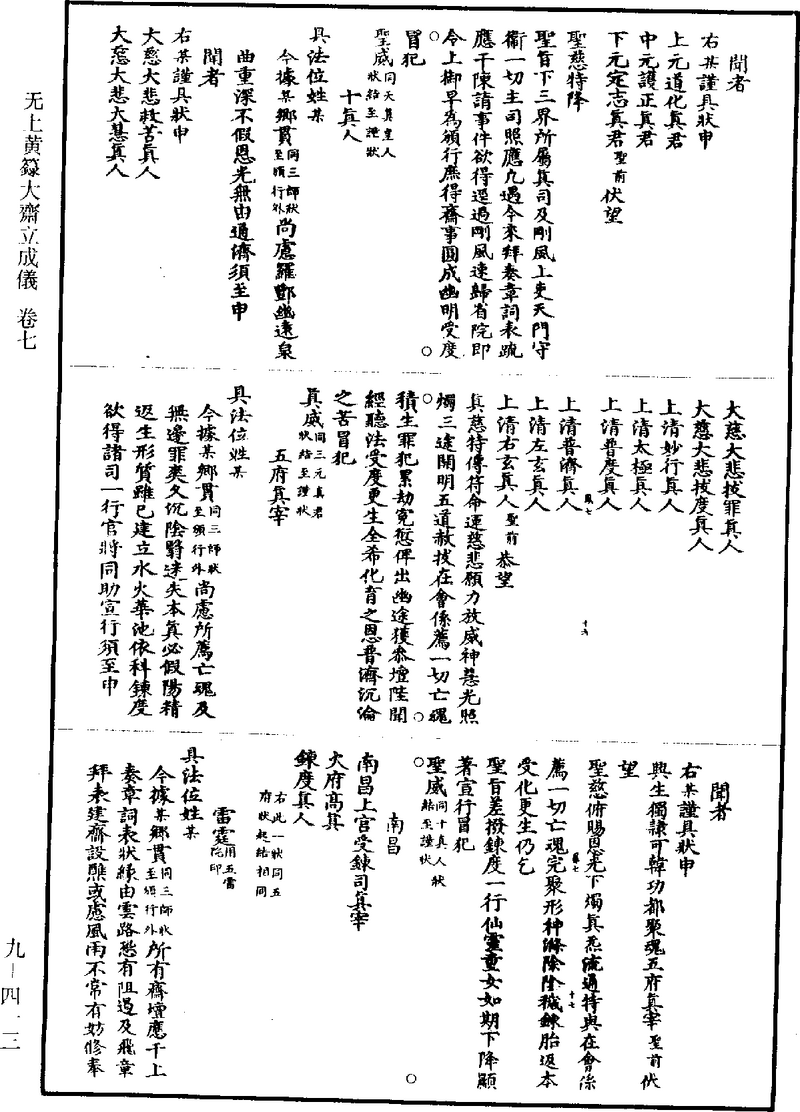 聞者
右某謹具狀申
上元道化真君
中元護正真君
下元定志真君聖前伏望
聖慈特降
聖旨下三界所屬真司及剛風上吏天門守
衞一切主司照應凢遇今來拜奏章詞表疏
應干陳請事件欲得逕過剛風速歸省院即
令上御早爲頒行庶得齋事圓成幽明受度
冒犯
聖威同天真皇人狀結至謹狀
十真人
具法位姓某
今據某鄉貫同三師狀至頒行外尚慮羅酆幽遠泉
曲重深不假恩光無由通濟須至申
聞者
右某謹具狀申
大慈大悲救苦真人
大慈大悲大惠真人
大慈大悲拔罪真人
大慈大悲拔度真人
上清妙行真人
上清太極真人
上清普度真人
上清普濟真人
上清左玄真人
上清右玄真人聖前恭望
真慈特傳符命運慈悲願力放威神慧光照
燭三途開明五道赦拔在會係薦一切亡魂
積生罪犯累劫寃愆俾出幽途獲叅壇陛聞
經聽法受度更生全希化育之恩普濟沉淪
之苦冒犯
真威同三元真君狀結至謹狀
五府真宰
具法位姓某
今據某鄉貫同三師狀至頒行外尚慮所薦亡魂及
無邊罪爽久沉陰翳迷失本真必假陽精
返生形質雖已建立水火華池依科鍊度
欲得諸司一行官將同助宣行須至申
聞者
右某謹具狀申
典生獨隸可韓功都聚魂五府真宰聖前伏
望
聖慈俯賜恩光下燭真炁流通特與在會係
薦一切亡魂完聚形神滌除陰穢鍊胎返本
受化更生仍乞
聖旨差撥鍊度一行仙靈童女如期下降顯
著宣行冒犯
聖威同十真人狀結至謹狀
南昌
南昌上宫受鍊司真宰
火府高真
鍊度真人
右此一狀同五府狀起結相同
雷霆用五雷院印
具法位姓某
今據某鄉貫同三師狀至頒行外所有齋壇應干上
奏章詞表狀縁由雲路恐有阻遏及飛章
拜表建齋設醮或慮風雨不常有妨修奉
无上黄籙大齋立成儀 卷七
九－四一三